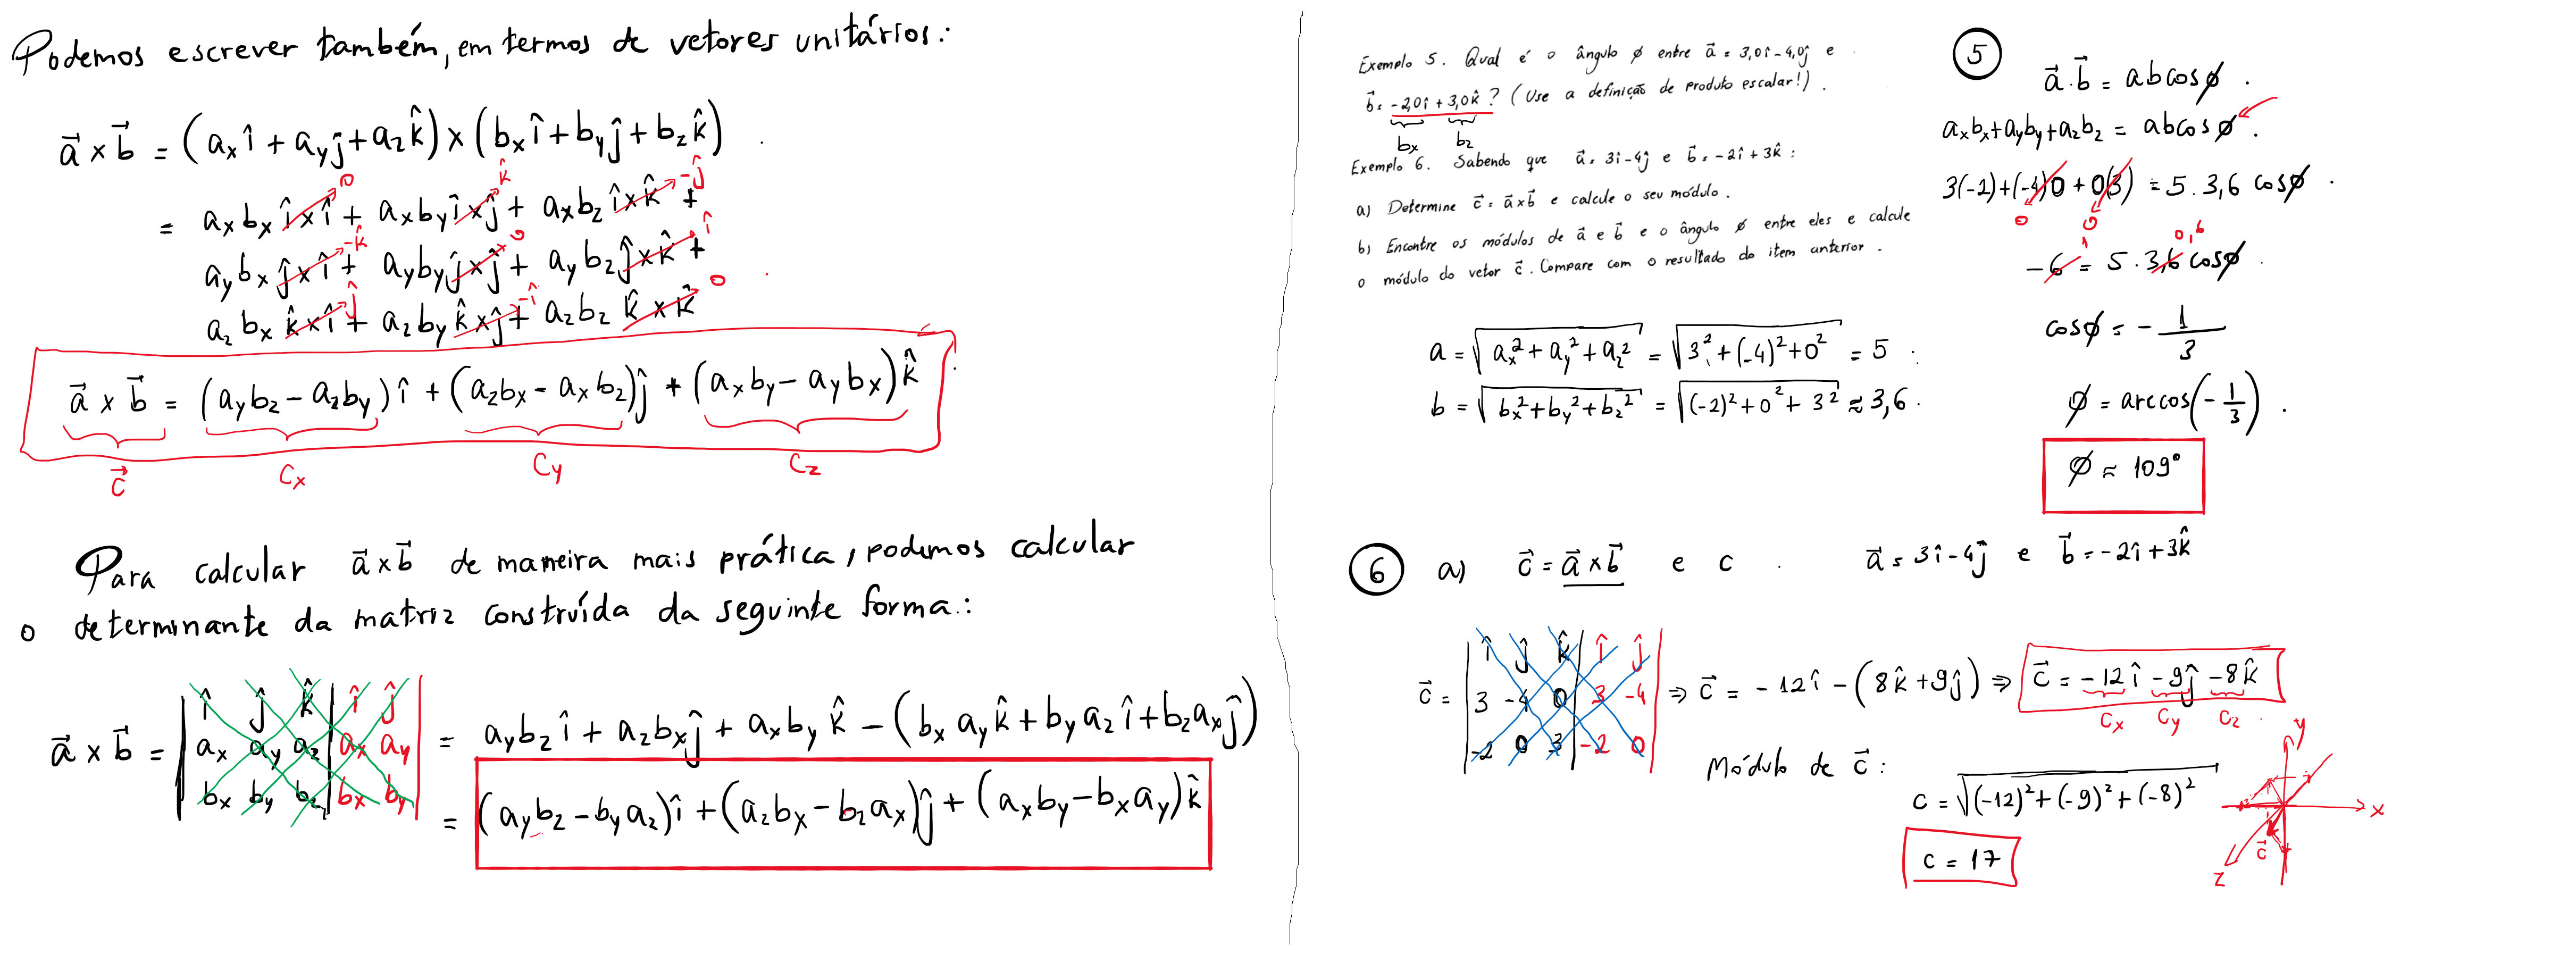 Podemos escrever também, em termos de vetores unitários:
a⃗ × b⃗ = (aₓ î + a_y ĵ + a_z k̂) × (bₓ î + b_y ĵ + b_z k̂)
= aₓ bₓ î × î + aₓ b_y î × ĵ + aₓ b_z î × k̂ +
0 k̂ -ĵ
a_y bₓ ĵ × î + a_y b_y ĵ × ĵ + a_y b_z ĵ × k̂ +
-k̂ 0 î
a_z bₓ k̂ × î + a_z b_y k̂ × ĵ + a_z b_z k̂ × k̂
ĵ -î 0
a⃗ × b⃗ = (a_y b_z − a_z b_y) î + (a_z bₓ − aₓ b_z) ĵ + (aₓ b_y − a_y bₓ) k̂
c⃗ Cₓ C_y C_z
Para calcular a⃗ × b⃗ de maneira mais prática, podemos calcular
o determinante da matriz construída da seguinte forma:
a⃗ × b⃗ = | î ĵ k̂ | î ĵ |
aₓ a_y a_z | aₓ a_y
bₓ b_y b_z | bₓ b_y
= a_y b_z î + a_z bₓ ĵ + aₓ b_y k̂ − (bₓ a_y k̂ + b_y a_z î + b_z aₓ ĵ)
= (a_y b_z − b_y a_z) î + (a_z bₓ − b_z aₓ) ĵ + (aₓ b_y − bₓ a_y) k̂
Exemplo 5. Qual é o ângulo ϕ entre a⃗ = 3,0î − 4,0ĵ e
b⃗ = −2,0î + 3,0k̂ ? (Use a definição de produto escalar!).
bₓ b_z
Exemplo 6. Sabendo que a⃗ = 3î − 4ĵ e b⃗ = −2î + 3k̂ :
a) Determine c⃗ = a⃗ × b⃗ e calcule o seu módulo.
b) Encontre os módulos de a⃗ e b⃗ e o ângulo ϕ entre eles e calcule
o módulo do vetor c⃗. Compare com o resultado do item anterior.
a = √(aₓ² + a_y² + a_z²) = √(3² + (−4)² + 0²) = 5
b = √(bₓ² + b_y² + b_z²) = √((−2)² + 0² + 3²) ≈ 3,6.
5
a⃗ · b⃗ = ab cos ϕ .
aₓbₓ + a_y b_y + a_z b_z = ab cos ϕ .
3(−2) + (−4)0 + 0(3) = 5 . 3,6 cos ϕ .
0 0
1 0,6
−6 = 5 . 3,6 cos ϕ .
cos ϕ = − 1/3
ϕ = arccos(− 1/3) .
ϕ ≈ 109°
6 a) c⃗ = a⃗ × b⃗ e c . a⃗ = 3î − 4ĵ e b⃗ = −2î + 3k̂
c⃗ = | î ĵ k̂ | î ĵ |
3 −4 0 | 3 −4
−2 0 3 | −2 0
⇒ c⃗ = −12î − (8k̂ + 9ĵ) ⇒ c⃗ = −12 î − 9ĵ − 8k̂
Cₓ C_y C_z
Módulo de c⃗ :
c = √((−12)² + (−9)² + (−8)²)
c = 17
y
x
z
c⃗